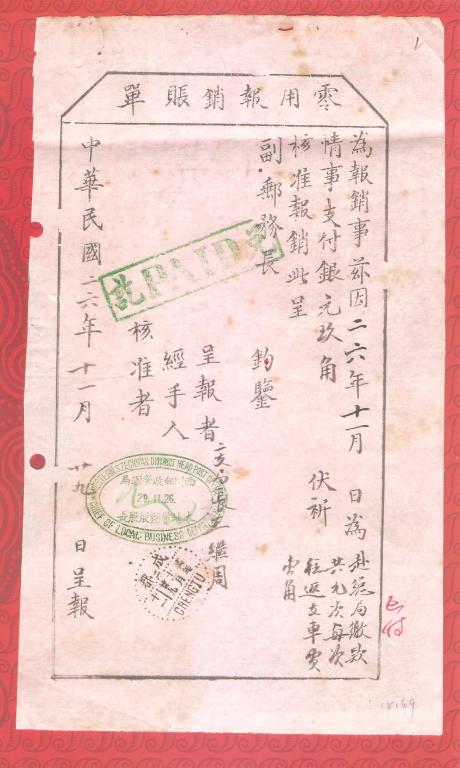 零用報銷賬單
為報銷事茲因二六年十一月 日為
赴總局繳款
共九次每次
往返支車費
壹角
情事支付銀元玖角 伏祈
核准報銷此呈
副郵務長 鈞鑒
訖PAID訖
呈報者
繼周
經手人
核准者
中華民國二六年十一月廿九日呈報
DISTRICT HEAD POST
西川郵政管理局
29.11.26.
CHIEF OF LOCAL BUSINESS
成都
CHENGTU
已付